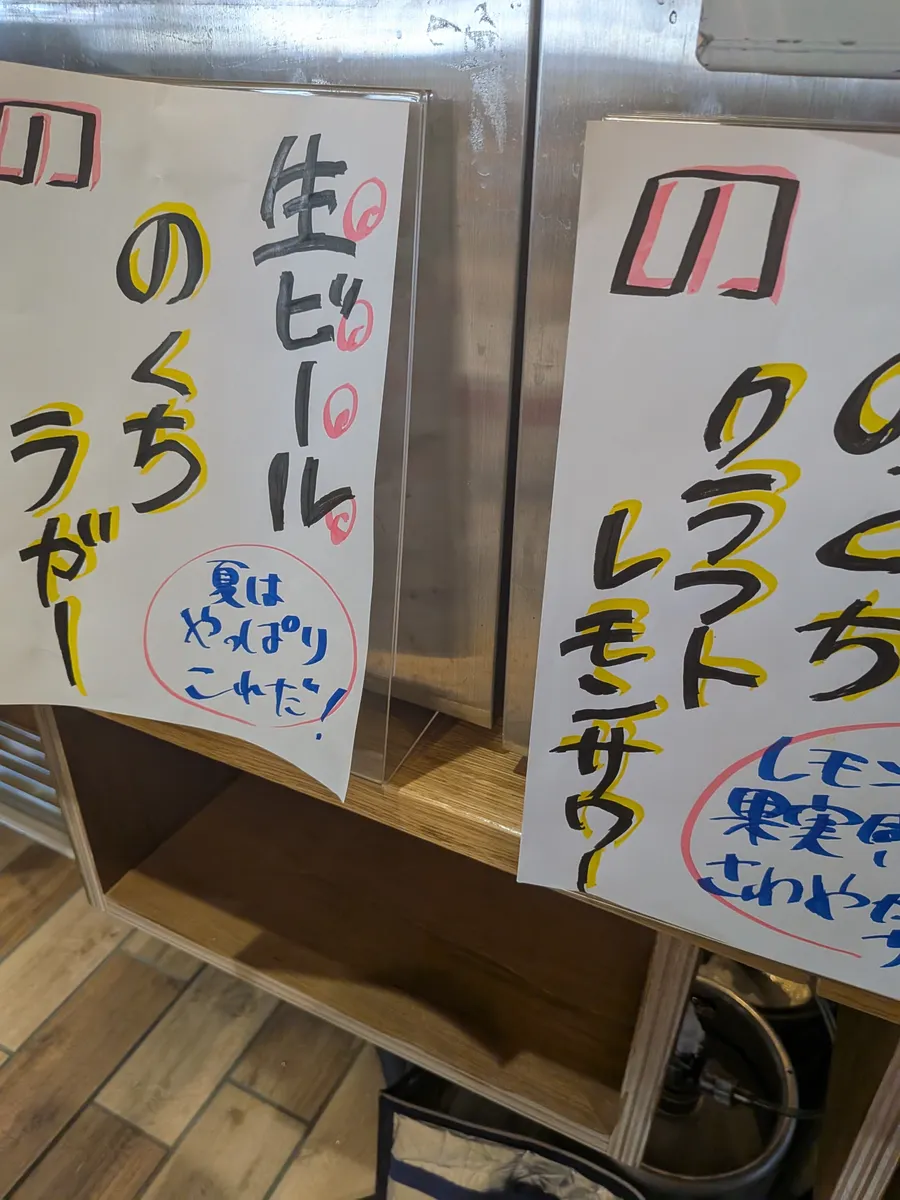 生ビール
のくち
ラガー
の
夏は
やっぱり
これだ!
のくち
クラフト
レモンサワー
の
レモン
果実
さわやか